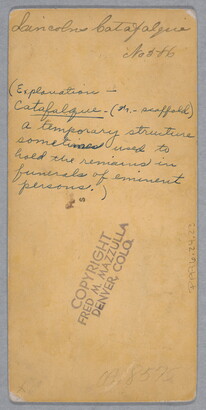 Lincolns Catafalque
No 546
(Explanation —
Catafalque — (  — scaffold)
a temporary structure
sometimes used to
hold the remains in
funerals of eminent
persons.)
COPYRIGHT
FRED M. MAZZULLA
DENVER, COLO.